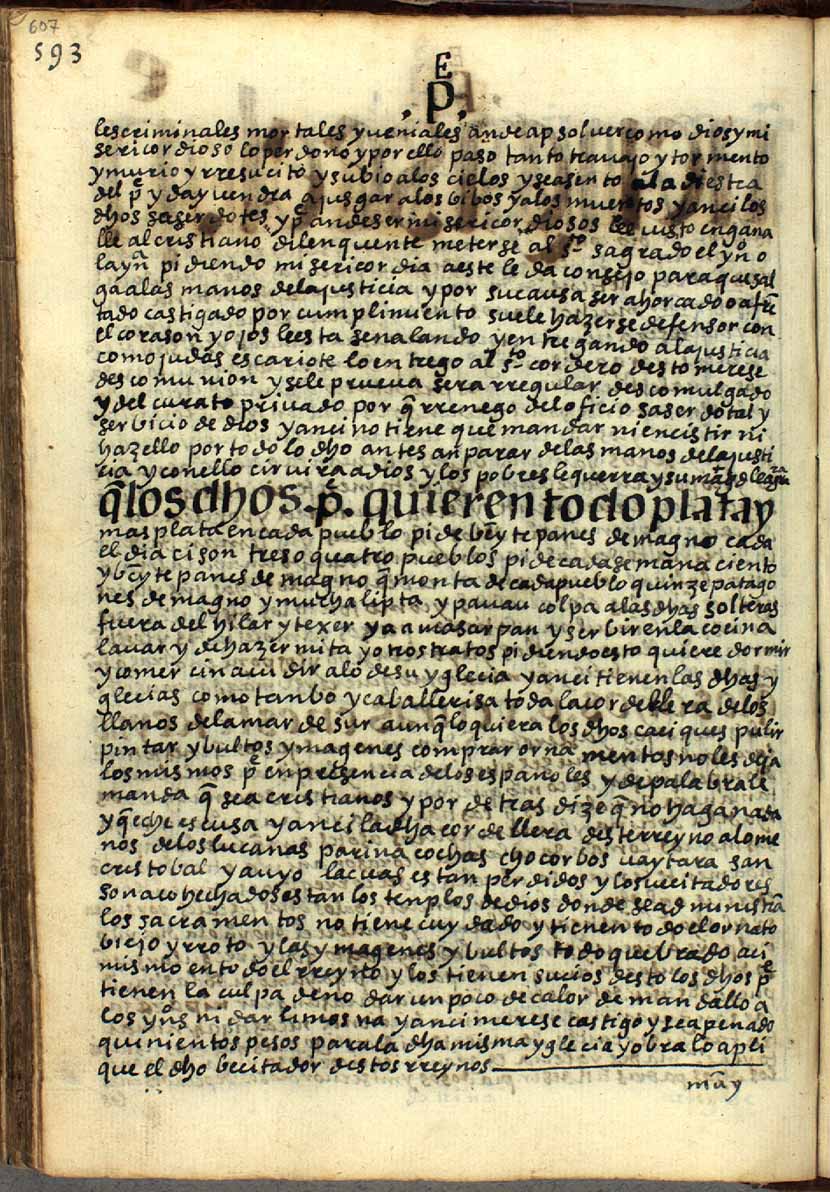 607
593
E
P.
les criminales mortales y ueniales an de apsoluer como dios y mi
sericordioso lo perdono y por ello paso tanto trauajo y tormento
y murio y rresucito y subio a los cielos y se asento a la diestra
del pe y da y uendra a jusgar a los bibos y a los muertos y anci los
dhos saserdotes y pe an de ser misericordiosos e uisto en gana
lle al cristiano dilenquente meterse al sto sagrado el yno o
la yna pidiendo misericordia a este le da consejo para que salga
a las manos de la justicia y por su causa ser ahorcado o afren
tado castigado por cumplimiento suele hazerse defensor con
el corason y ojos le esta señalando y entregando a la justicia
como judas escariote lo entrego al sto cordero desto merese
descomunion y se le prueua sera rregular descomulgado
y del curato priuado por q rrenego del oficio saserdotal y
serbicio de dios y anci no tiene que mandar ni encistir ni
hazello por todo lo dho antes anparar de las manos de la justi
cia y con ello ciruira a dios y los pobres le querra y su magd le
q los dhos pes quieren todo plata y
mas plata en cada pueblo pide beynte panes de magno cada
el dia ci son tres o quatro pueblos pide cada semana ciento
y beynte panes de magno q monta de cada pueblo quinze patago
nes de magno y mucha lipta y pauau colpa a las dhas solteras
fuera del hilar y texer y a amasar pan y serbir en la cocina
lauar y de hazer mita y otros tratos pidiendo esto quiere dormir
y comer cin acudir a lo de su yglecia y anci tienen las dhas y
glecias como tanbo y caballerisa toda la cordellera de los
llanos de la mar de sur aunq lo quiera los dhos caciques pulir
pintar y bultos ymagenes comprar ornamentos no les deja
los mismos pes en presencia de los españoles y de palabra le
manda q sea cristianos y por detras dize q no haga nada
y q eche escusa y anci la dha cordellera deste rreyno a lo me
nos de los lucanas parinacochas chocorbos uaytara san
cristobal y auyo lacuas estan perdidos y los uecitadores
son acohechados estan los tenplos de dios donde se administra
los sacramentos no tiene cuydado y tienen todo el ornato
biejo y rroto y las ymagenes y bultos todo quebrado aci
mismo en todo el rreyno y los tienen sucios desto los dhos pe
tienen la culpa de no dar un poco de calor de mandallo a
los yns ni dar limosna y anci merese castigo y sea penado
quinientos pesos para la dha misma yglecia y obra lo apli
que el dho becitador destos rreynos
muy